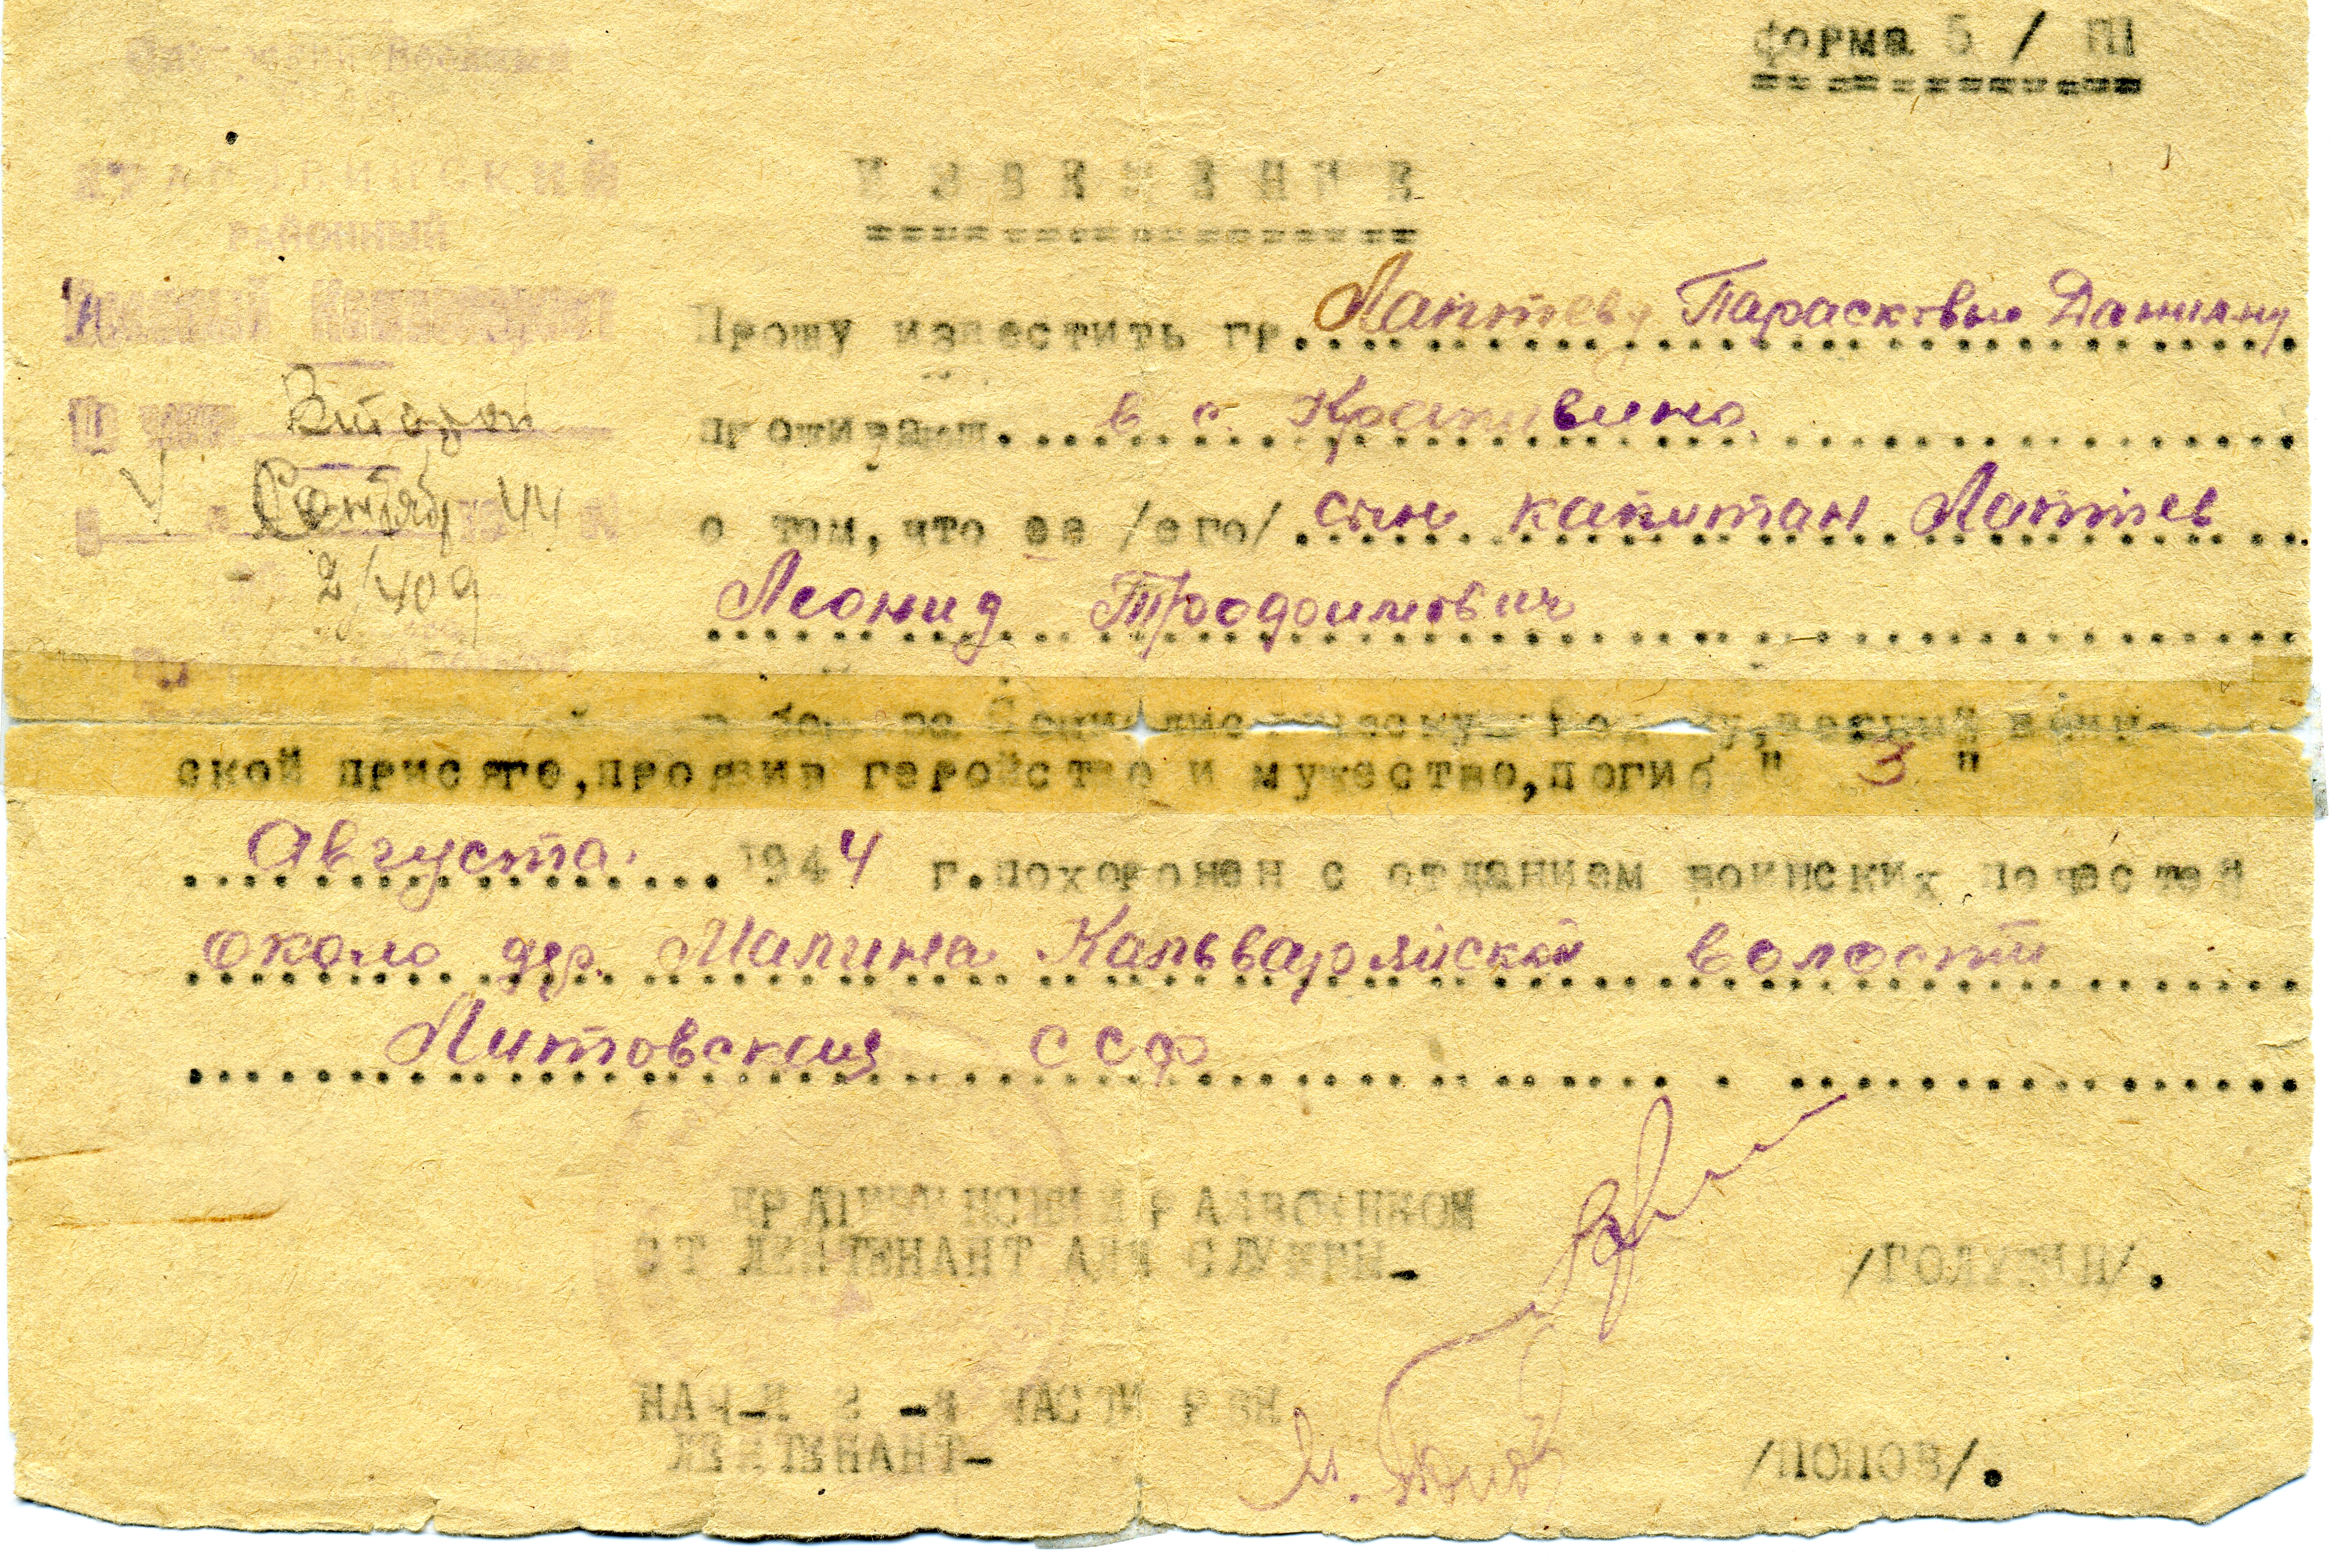 форма 5 / ПI
ИЗВЕЩЕНИЕ
КРАПИВИНСКИЙ
РАЙОННЫЙ
Военный Комиссариат
По части Второй
Сентябр 19 44
2/409
Прошу известить гр. Лаптеву Парасковью Данилну
проживающ. в с. Крапивино.
о том, что ее /его/ сын капитан Лаптев
Леонид Трофимович
в бою за Социалистическую Родину, верный воин-
ской присяге, проявив геройство и мужество, погиб " 3 "
Августа. 1944 г. похоронен с отданием воинских почестей
около дер. Малина Кальварийской волости
Литовская ССР
КРАПИВИНСКИЙ РАЙВОЕНКОМ
СТ ЛЕЙТЕНАНТ АДМ СЛУЖБЫ-
/ГОЛУБЕВ/.
НАЧ-К 2 -й ЧАСТИ РВК
ЛЕЙТЕНАНТ-
/ПОПОВ/.